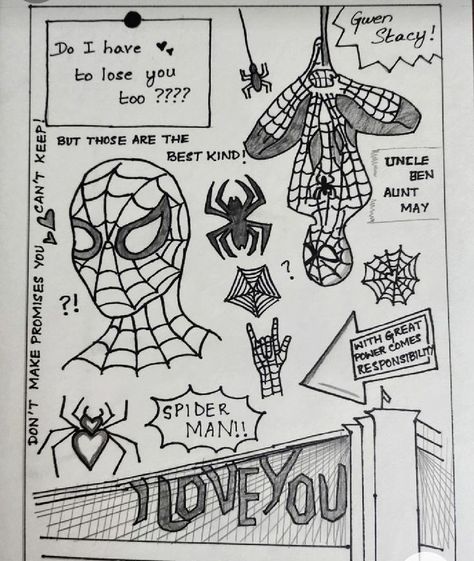 Do I have
to lose you
too ????
Gwen
Stacy!
BUT THOSE ARE THE
BEST KIND!
DON'T MAKE PROMISES YOU CAN'T KEEP!
UNCLE
BEN
AUNT
MAY
?!
?
WITH GREAT
POWER COMES
RESPONSIBILITY
SPIDER
MAN!!
I LOVE YOU